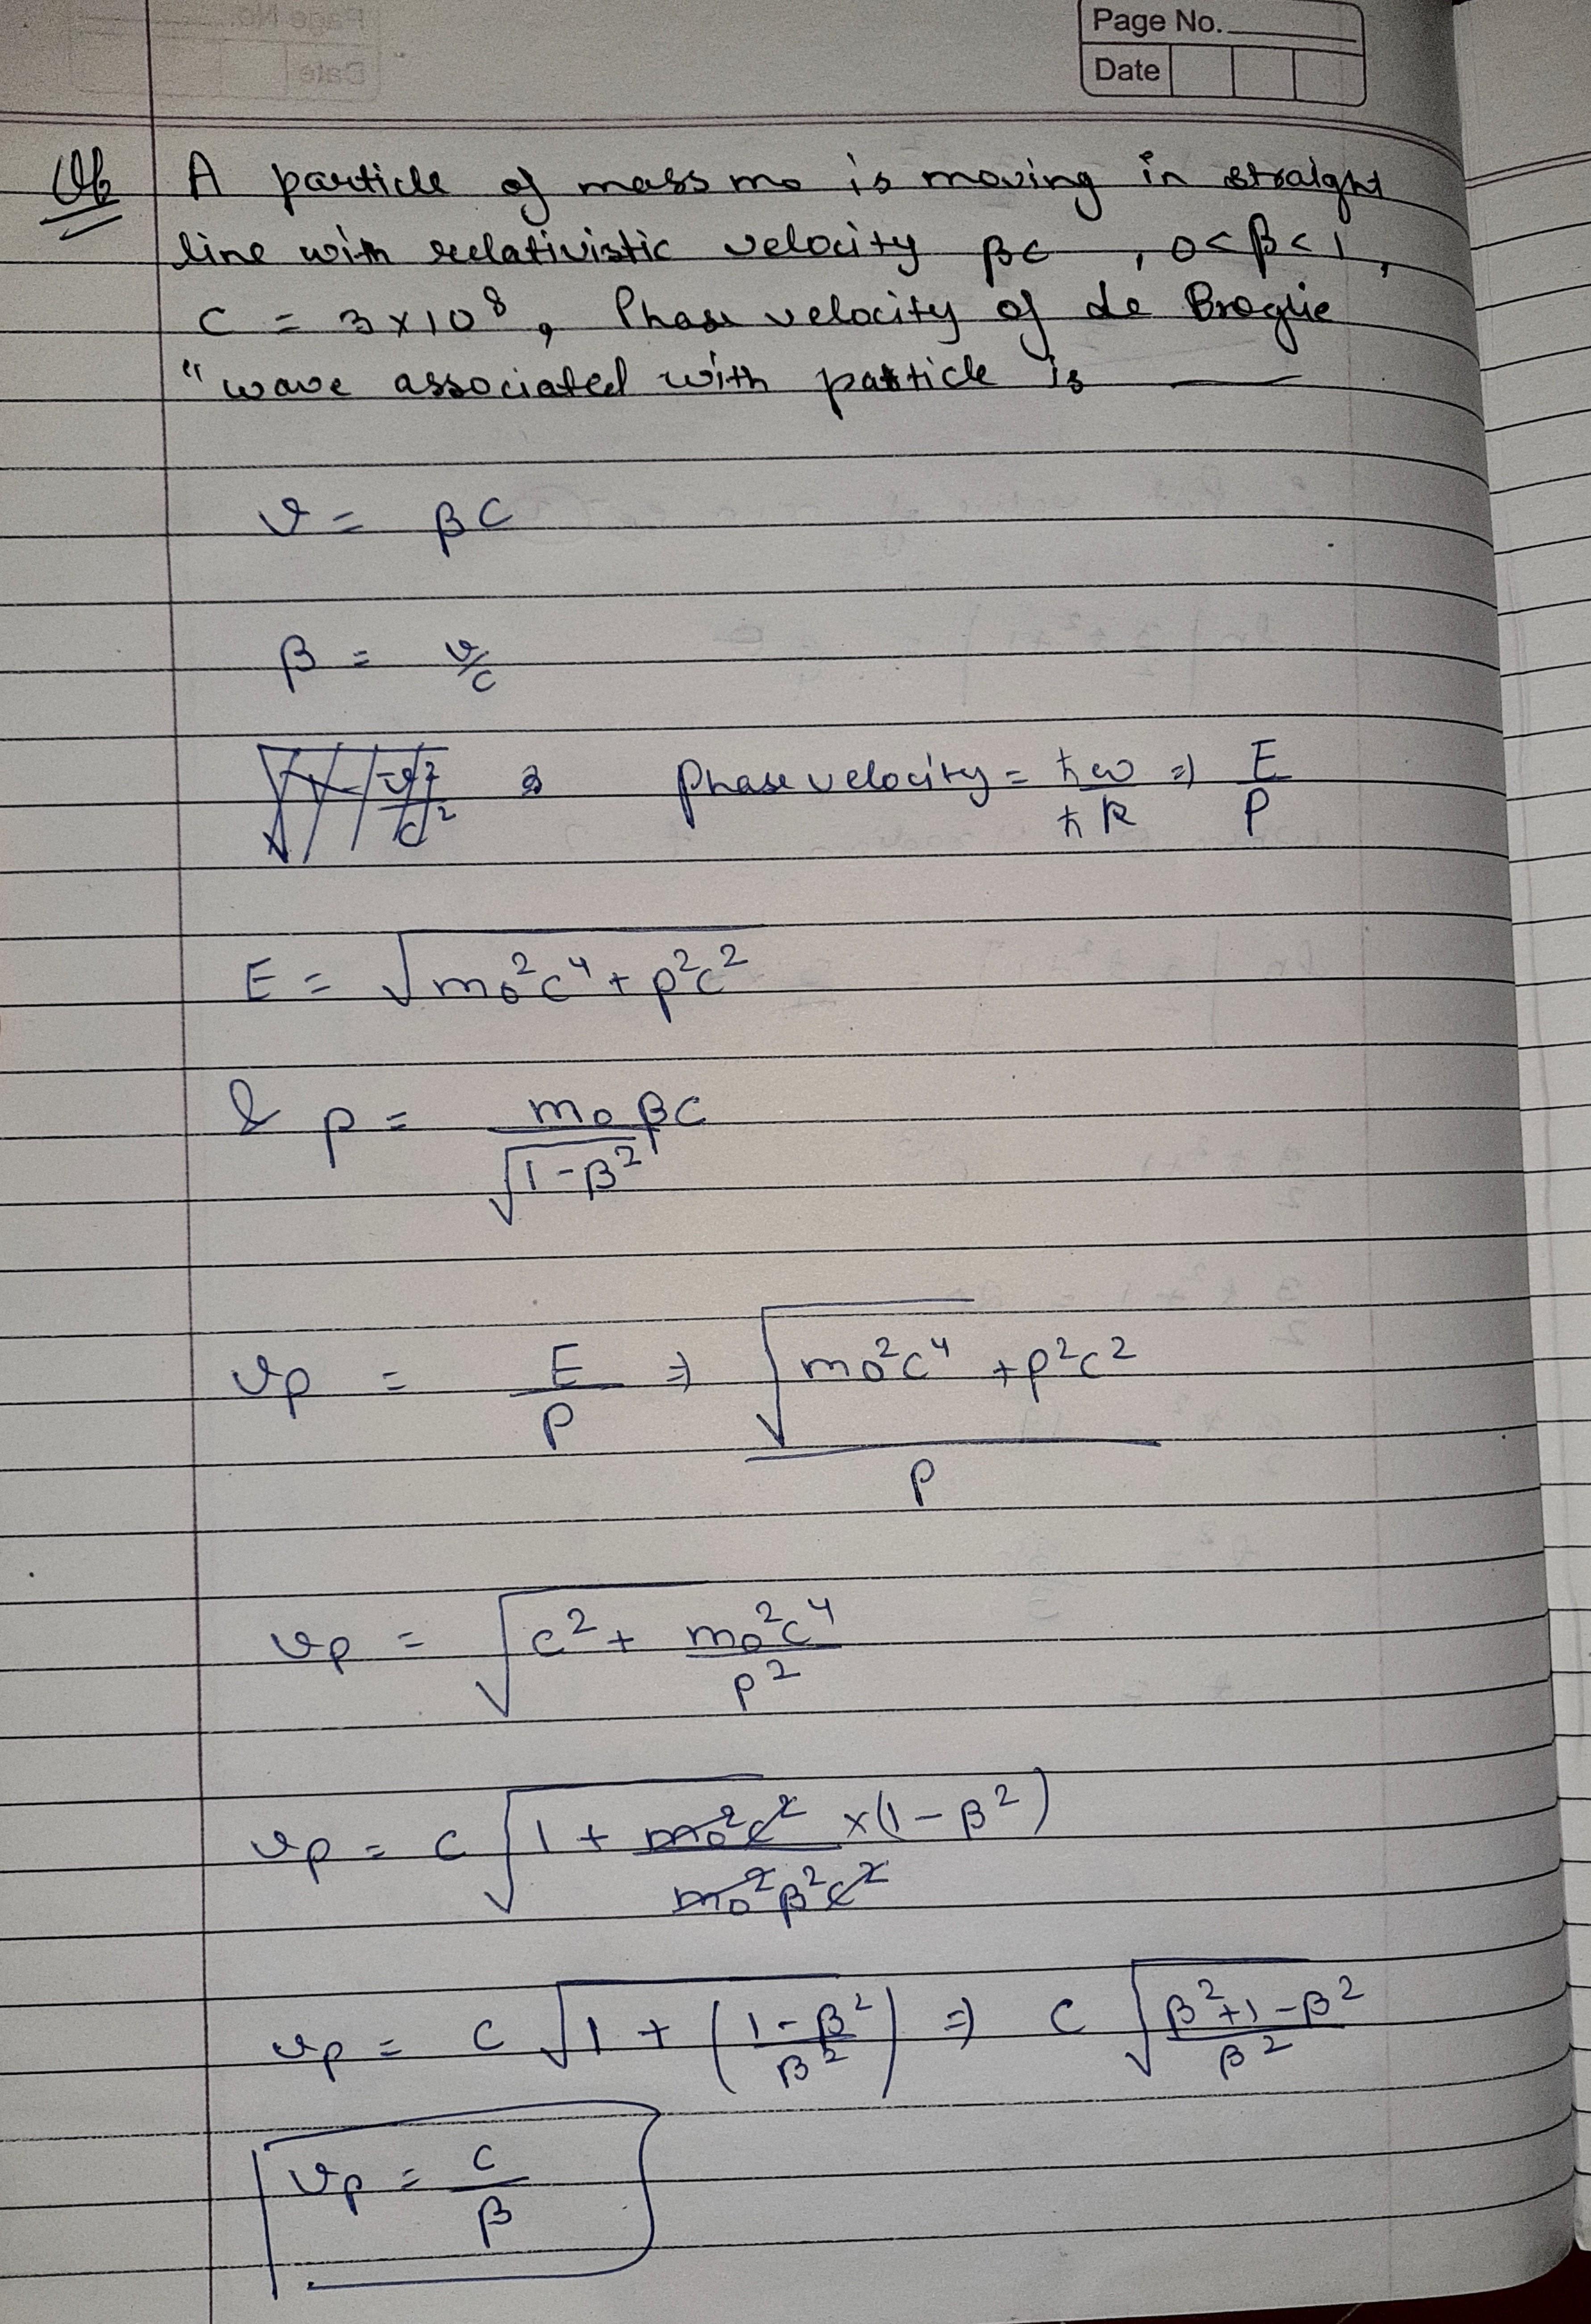 Page No.
Date
Q6 A particle of mass m₀ is moving in straight
line with relativistic velocity βc , 0<β<1,
C = 3×10⁸, Phase velocity of de Broglie
" wave associated with particle is ___
v = βC
β = v/c
Phase velocity = ħω/ħk ⇒ E/P
E = √(m₀²c⁴ + p²c²)
& p = m₀βC/√(1-β²)
vp = E/P ⇒ √(m₀²c⁴ + p²c²)/P
vp = √(c² + m₀²c⁴/p²)
vp = c √(1 + m₀²c²/m₀²β²c² ×(1-β²))
vp = C √(1 + (1-β²/β²)) ⇒ C √(β²+1-β²/β²)
vp = C/β